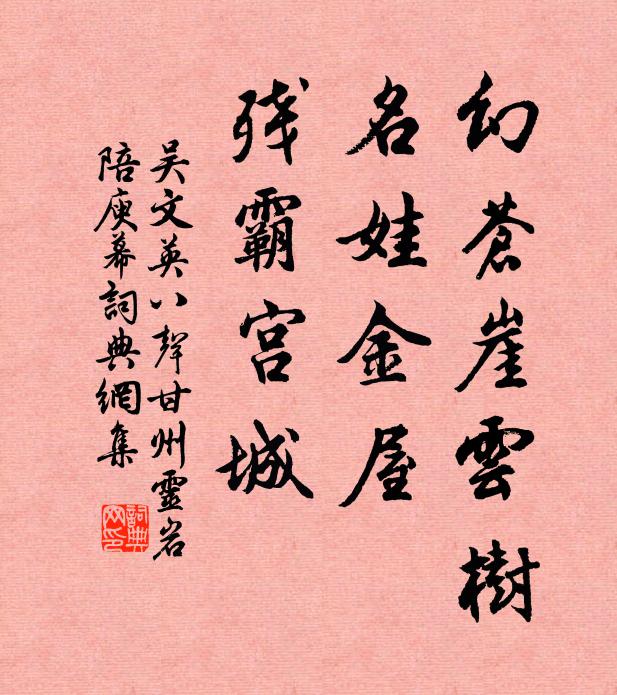 幻蒼崖雲樹
名娃金屋
残霸宫城
吴文英八聲甘州靈岩
陪庾幕詞典網集
詞典
网印